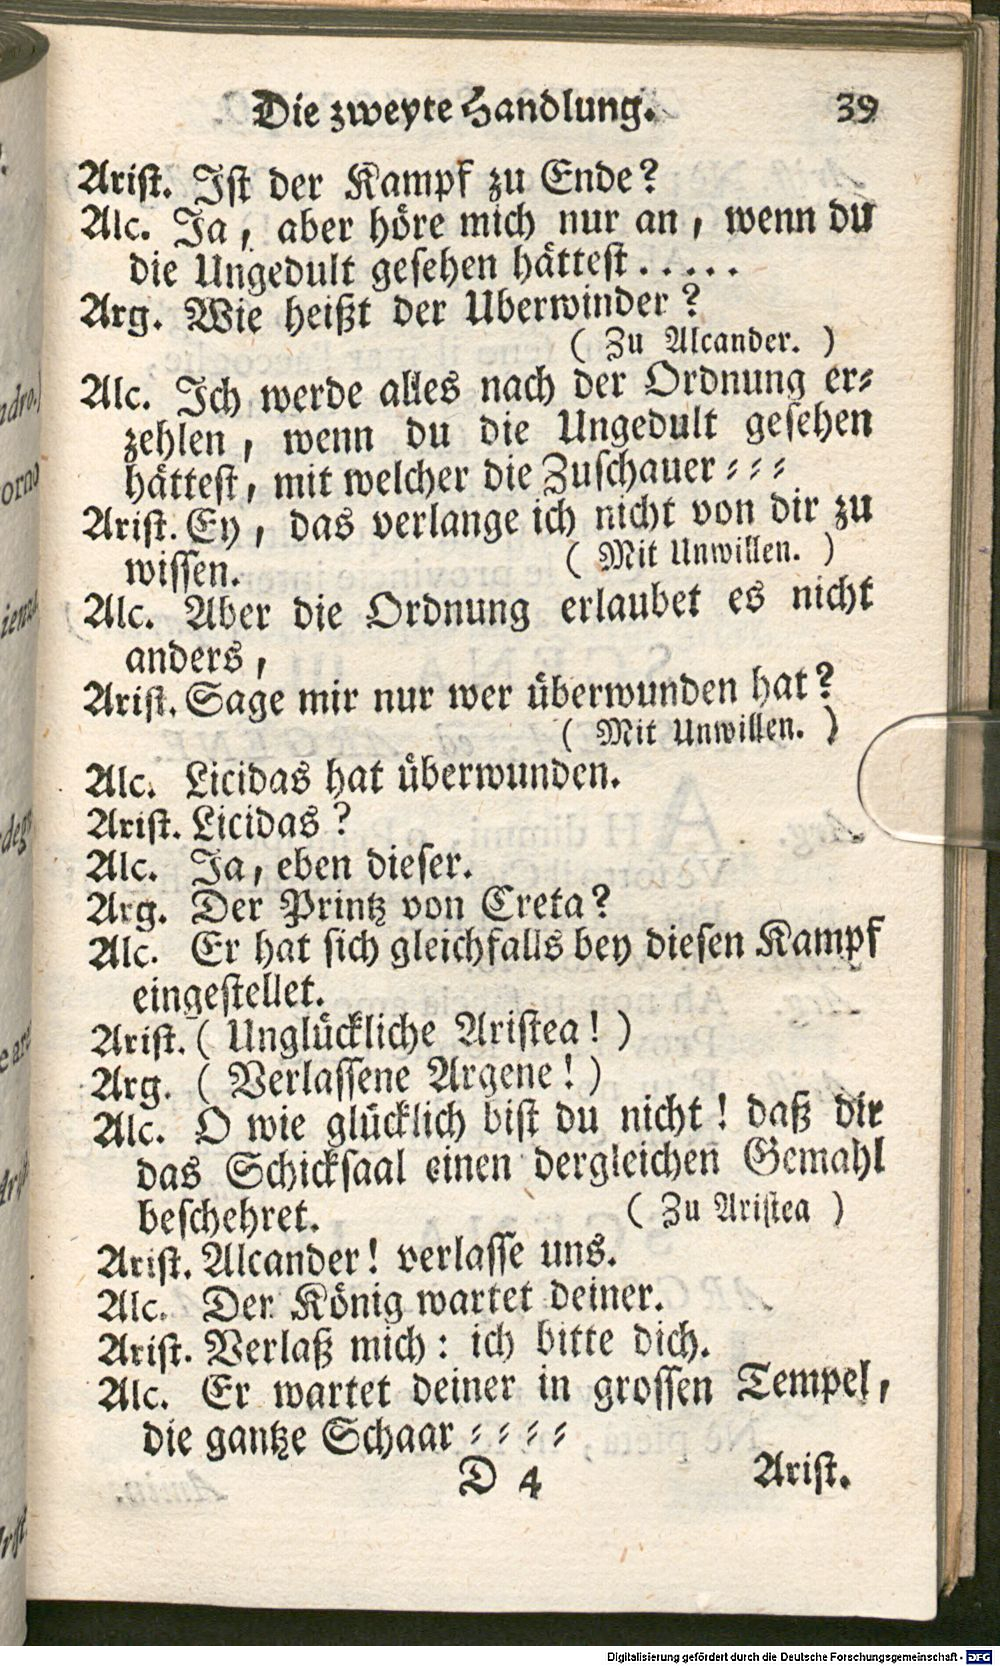 Die zweyte Handlung. 39
Arist. Ist der Kampf zu Ende?
Alc. Ja, aber höre mich nur an, wenn du
die Ungedult gesehen hättest.....
Arg. Wie heißt der Uberwinder?
( Zu Alcander. )
Alc. Ich werde alles nach der Ordnung er-
zehlen, wenn du die Ungedult gesehen
hättest, mit welcher die Zuschauer - - -
Arist. Ey, das verlange ich nicht von dir zu
wissen. ( Mit Unwillen. )
Alc. Aber die Ordnung erlaubet es nicht
anders,
Arist. Sage mir nur wer überwunden hat?
( Mit Unwillen. )
Alc. Licidas hat überwunden.
Arist. Licidas?
Alc. Ja, eben dieser.
Arg. Der Printz von Creta?
Alc. Er hat sich gleichfalls bey diesen Kampf
eingestellet.
Arist. ( Unglückliche Aristea! )
Arg. ( Verlassene Argene! )
Alc. O wie glücklich bist du nicht! daß dir
das Schicksaal einen dergleichen Gemahl
beschehret. ( Zu Aristea )
Arist. Alcander! verlasse uns.
Alc. Der König wartet deiner.
Arist. Verlaß mich: ich bitte dich.
Alc. Er wartet deiner in grossen Tempel,
die gantze Schaar - - - -
D 4 Arist.
Digitalisierung gefördert durch die Deutsche Forschungsgemeinschaft - DFG